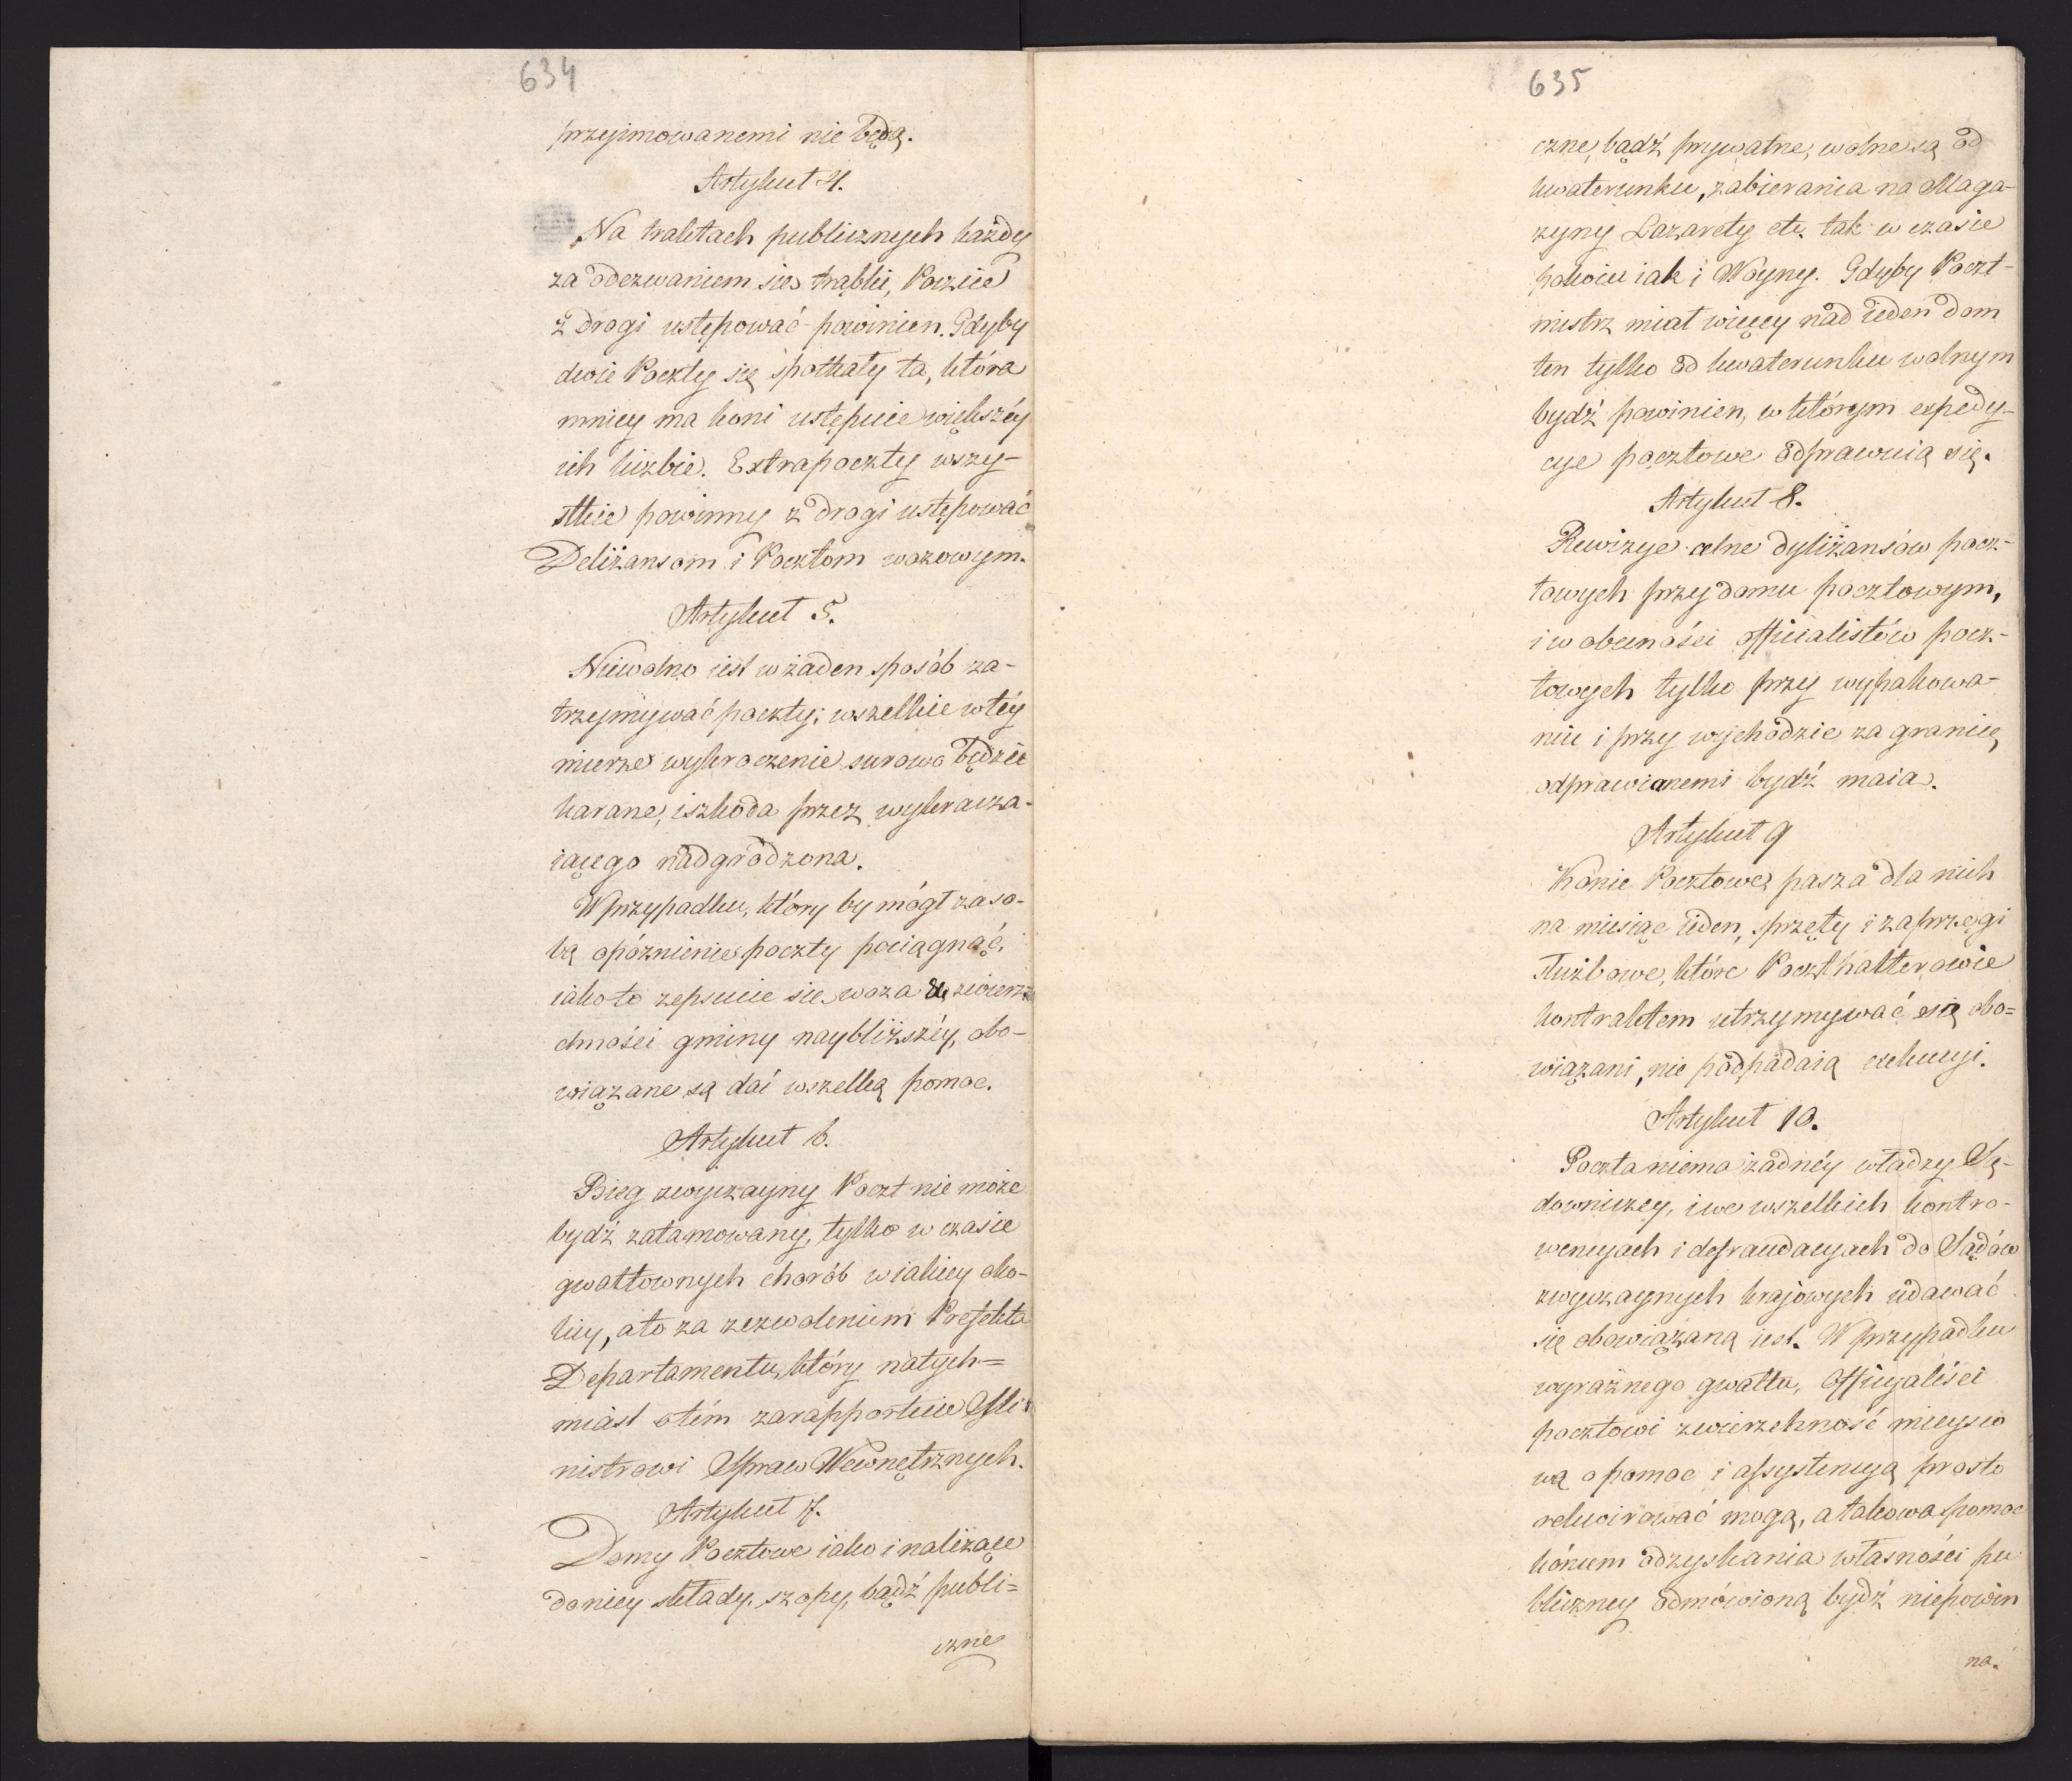 634
przyjmowanemi nie będą.
Artykuł 4.
Na traktach publicznych każdy
za odezwaniem się trąbki, Poczcie
z drogi ustępować powinien. Gdyby
dwie Poczty się spotkały ta, która
mniey ma koni ustępuie większéy
ich liczbie. Extrapoczty wszy-
stkie powinny z drogi ustępować
Deliżansom i Pocztom wozowym.
Artykuł 5.
Niewolno iest w żaden sposób za-
trzymywać poczty; wszelkie w téy
mierze wykroczenie surowo będzie
karane, i szkoda przez wykracza-
iącego nadgrodzona.
W przypadku, który by mógł za so-
bą opóznienie poczty pociągnąć,
iako to zepsucie się woza &c zwierz-
chności gminy naybliższéy, obo-
wiązane są dać wszelką pomoc.
Artykuł 6.
Bieg zwyczayny Poczt nie może
bydź zatamowany, tylko w czasie
gwałtownych chorób w iakiey oko-
licy, a to za zezwoleniem Prefekta
Departamentu, który natych=
miast o tém zarapportuie Mi-
nistrowi Spraw Wewnętrznych.
Artykuł 7.
Domy Pocztowe iako i należące
do niey składy, szopy, bądź publi=
czne
635
czne, bądź prywatne, wolne są od
kwaterunku, zabierania na Maga-
zyny Lazarety etc. tak w czasie
pokoiu iak i Woyny. Gdyby Poczt-
mistrz miał więcey nad ieden dom
ten tylko od kwaterunku wolnym
bydź powinien, w którym expedy-
cye pocztowe odprawuią się.
Artykuł 8.
Rewizye celne dyliżansów pocz-
towych przy domu pocztowym,
i w obecności officialistów pocz-
towych tylko przy wypakowa-
niu i przy wychodzie za granicę
odprawianemi bydź maia.
Artykuł 9
Konie Pocztowe, pasza dla nich
na miesiąc ieden, sprzęty i zaprzęgi
służbowe, które Poczthalterowie
kontraktem utrzymywać się obo=
wiązani, nie podpadaią exekucyi.
Artykuł 10.
Poczta niema żadnéy władzy Są-
downiczey, i we wszelkich kontro-
wencyach i defraudacyach do Sądów
zwyczaynych krajowych udawać
się obowiązaną iest. W przypadku
wyraźnego gwałtu, Officyaliści
pocztowi zwierzchność mieysco
wą o pomoc i assystencyą prosto
rekwirować mogą, a takowa pomoc
końcem odzyskania własności pu
bliczney odmówioną bydź niepowin
na.